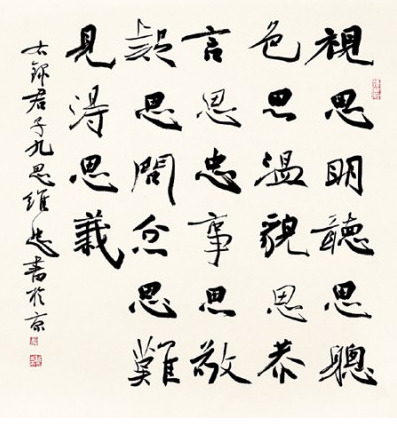 視思明聽思聰
色思温貌思恭
言思忠事思敬
疑思問忿思難
見得思義
右錄君子九思維忠書於京